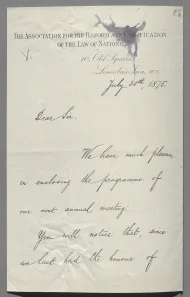 THE ASSOCIATION FOR THE REFORM AND CODIFICATION
OF THE LAW OF NATIONS.
Lincoln's Inn, W.C.
July 30th, 1875.
Dear Sir,
We have much pleasure
in enclosing the programme of
our next annual meeting.
You will notice that, since
we last had the honour of